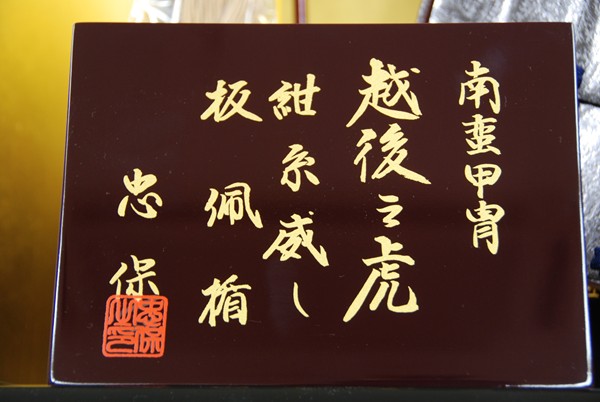 南蛮甲冑
越後之虎
紺糸威し
板佩楯
忠保
忠保之印